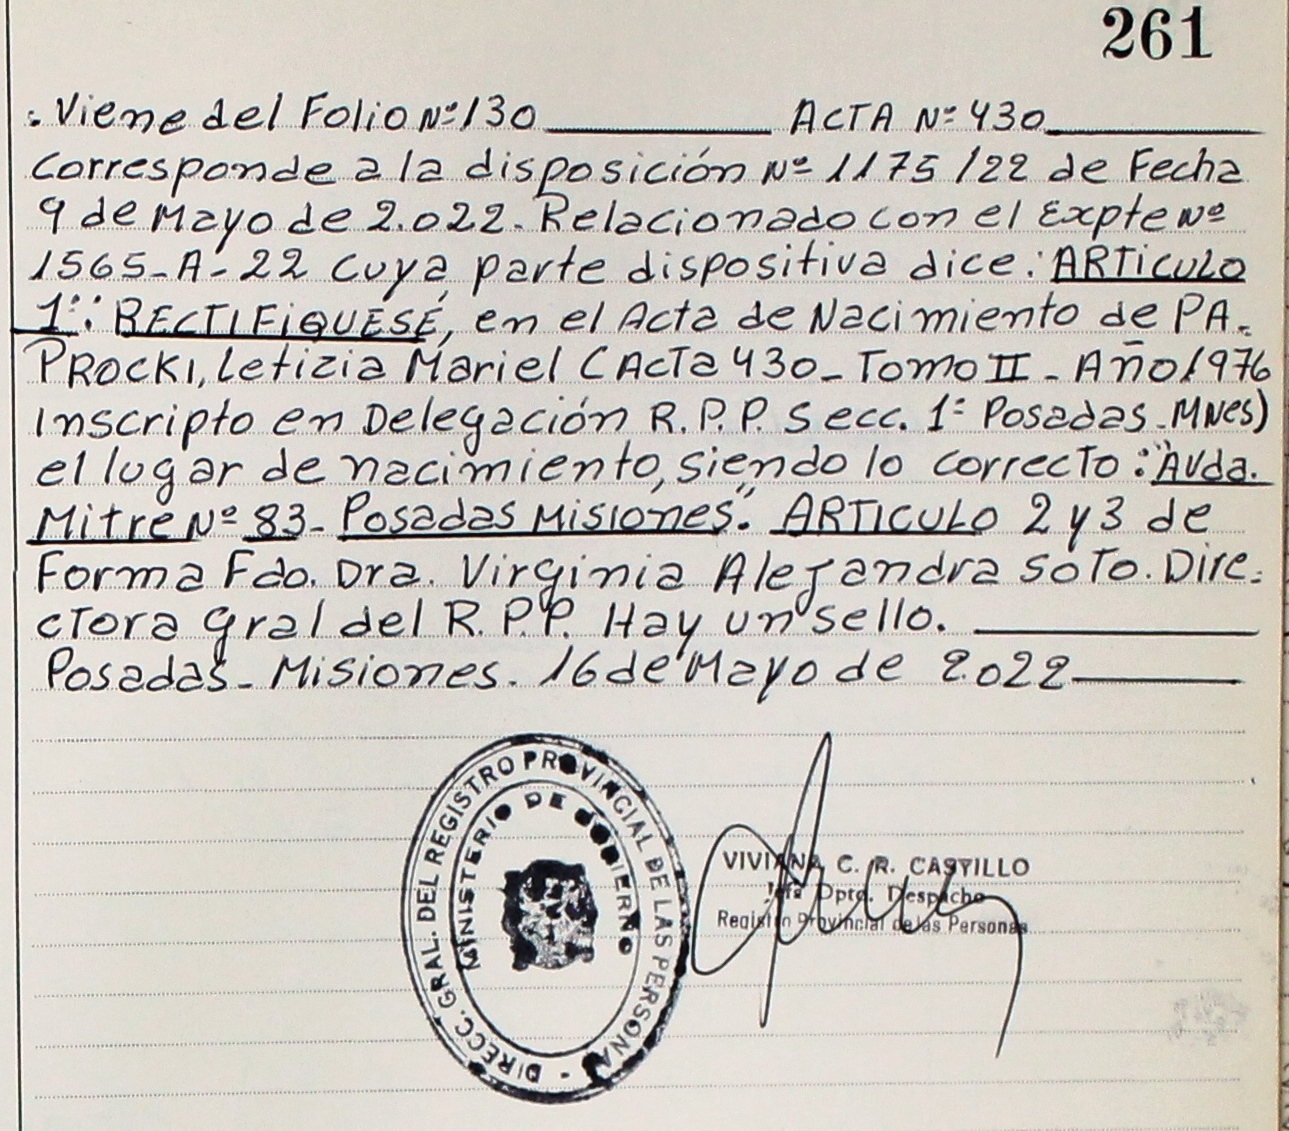 261
: Viene del Folio Nº 130 ACTA Nº 430
Corresponde a la disposición Nº 1175/22 de Fecha
9 de Mayo de 2.022. Relacionado con el Expte Nº
1565-A-22 Cuya parte dispositiva dice: ARTICULO
1º: RECTIFIQUESÉ, en el Acta de Nacimiento de PA-
PROCKI, Letizia Mariel (ACTA 430- Tomo II - Año 1976
Inscripto en Delegación R.P.P. Secc. 1º Posadas - MNes)
el lugar de nacimiento, siendo lo correcto: "AVda.
Mitre Nº 83- Posadas Misiones". ARTICULO 2 y 3 de
Forma Fdo. Dra. Virginia Alejandra Soto. Dire-
ctora Gral del R.P.P. Hay un sello.
Posadas- Misiones. 16 de Mayo de 2.022
DIRECC. GRAL. DEL REGISTRO PROVINCIAL DE LAS PERSONAS -
MINISTERIO DE GOBIERNO
VIVIANA C. R. CASTILLO
Jefa Dpto. Despacho
Registro Provincial de las Personas